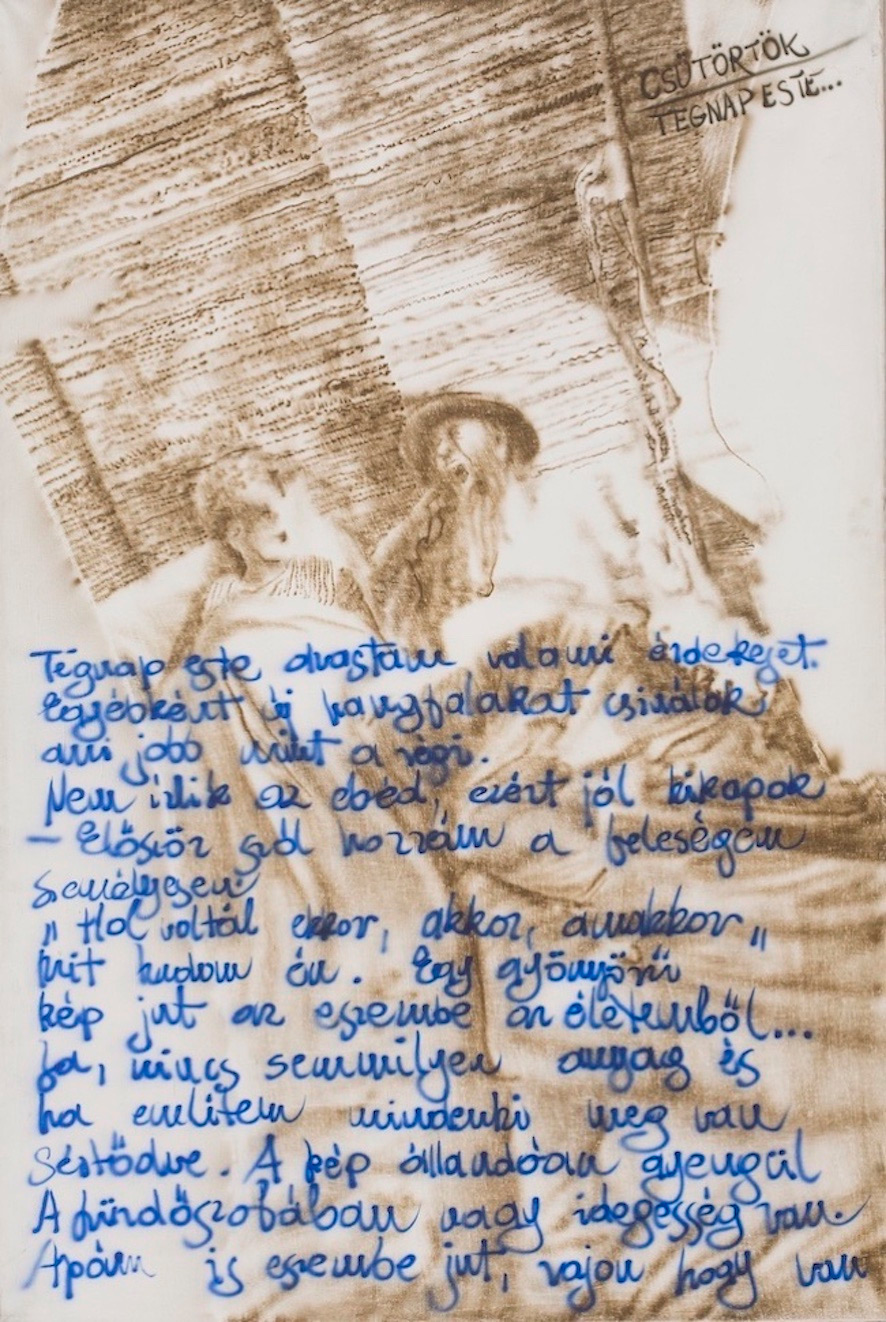 CSÜTÖRTÖK
TEGNAP ESTE...
Tegnap este olvastam valami érdekeset.
Egyébként új hangfalakat csinálok
ami jobb mint a régi.
Nem ízlik az ebéd, ezért jól kikapok
– Először szól hozzám a feleségem
személyesen
„Hol voltál ekkor, akkor, amakkor„
mit tudom én. Egy gyönyörű
kép jut az eszembe az életemből...
fa, nincs semmilyen anyag és
ha említem mindenki meg van
sértődve. A kép állandóan gyengül
A fürdőszobában nagy idegesség van.
Apám is eszembe jut, vajon hogy van